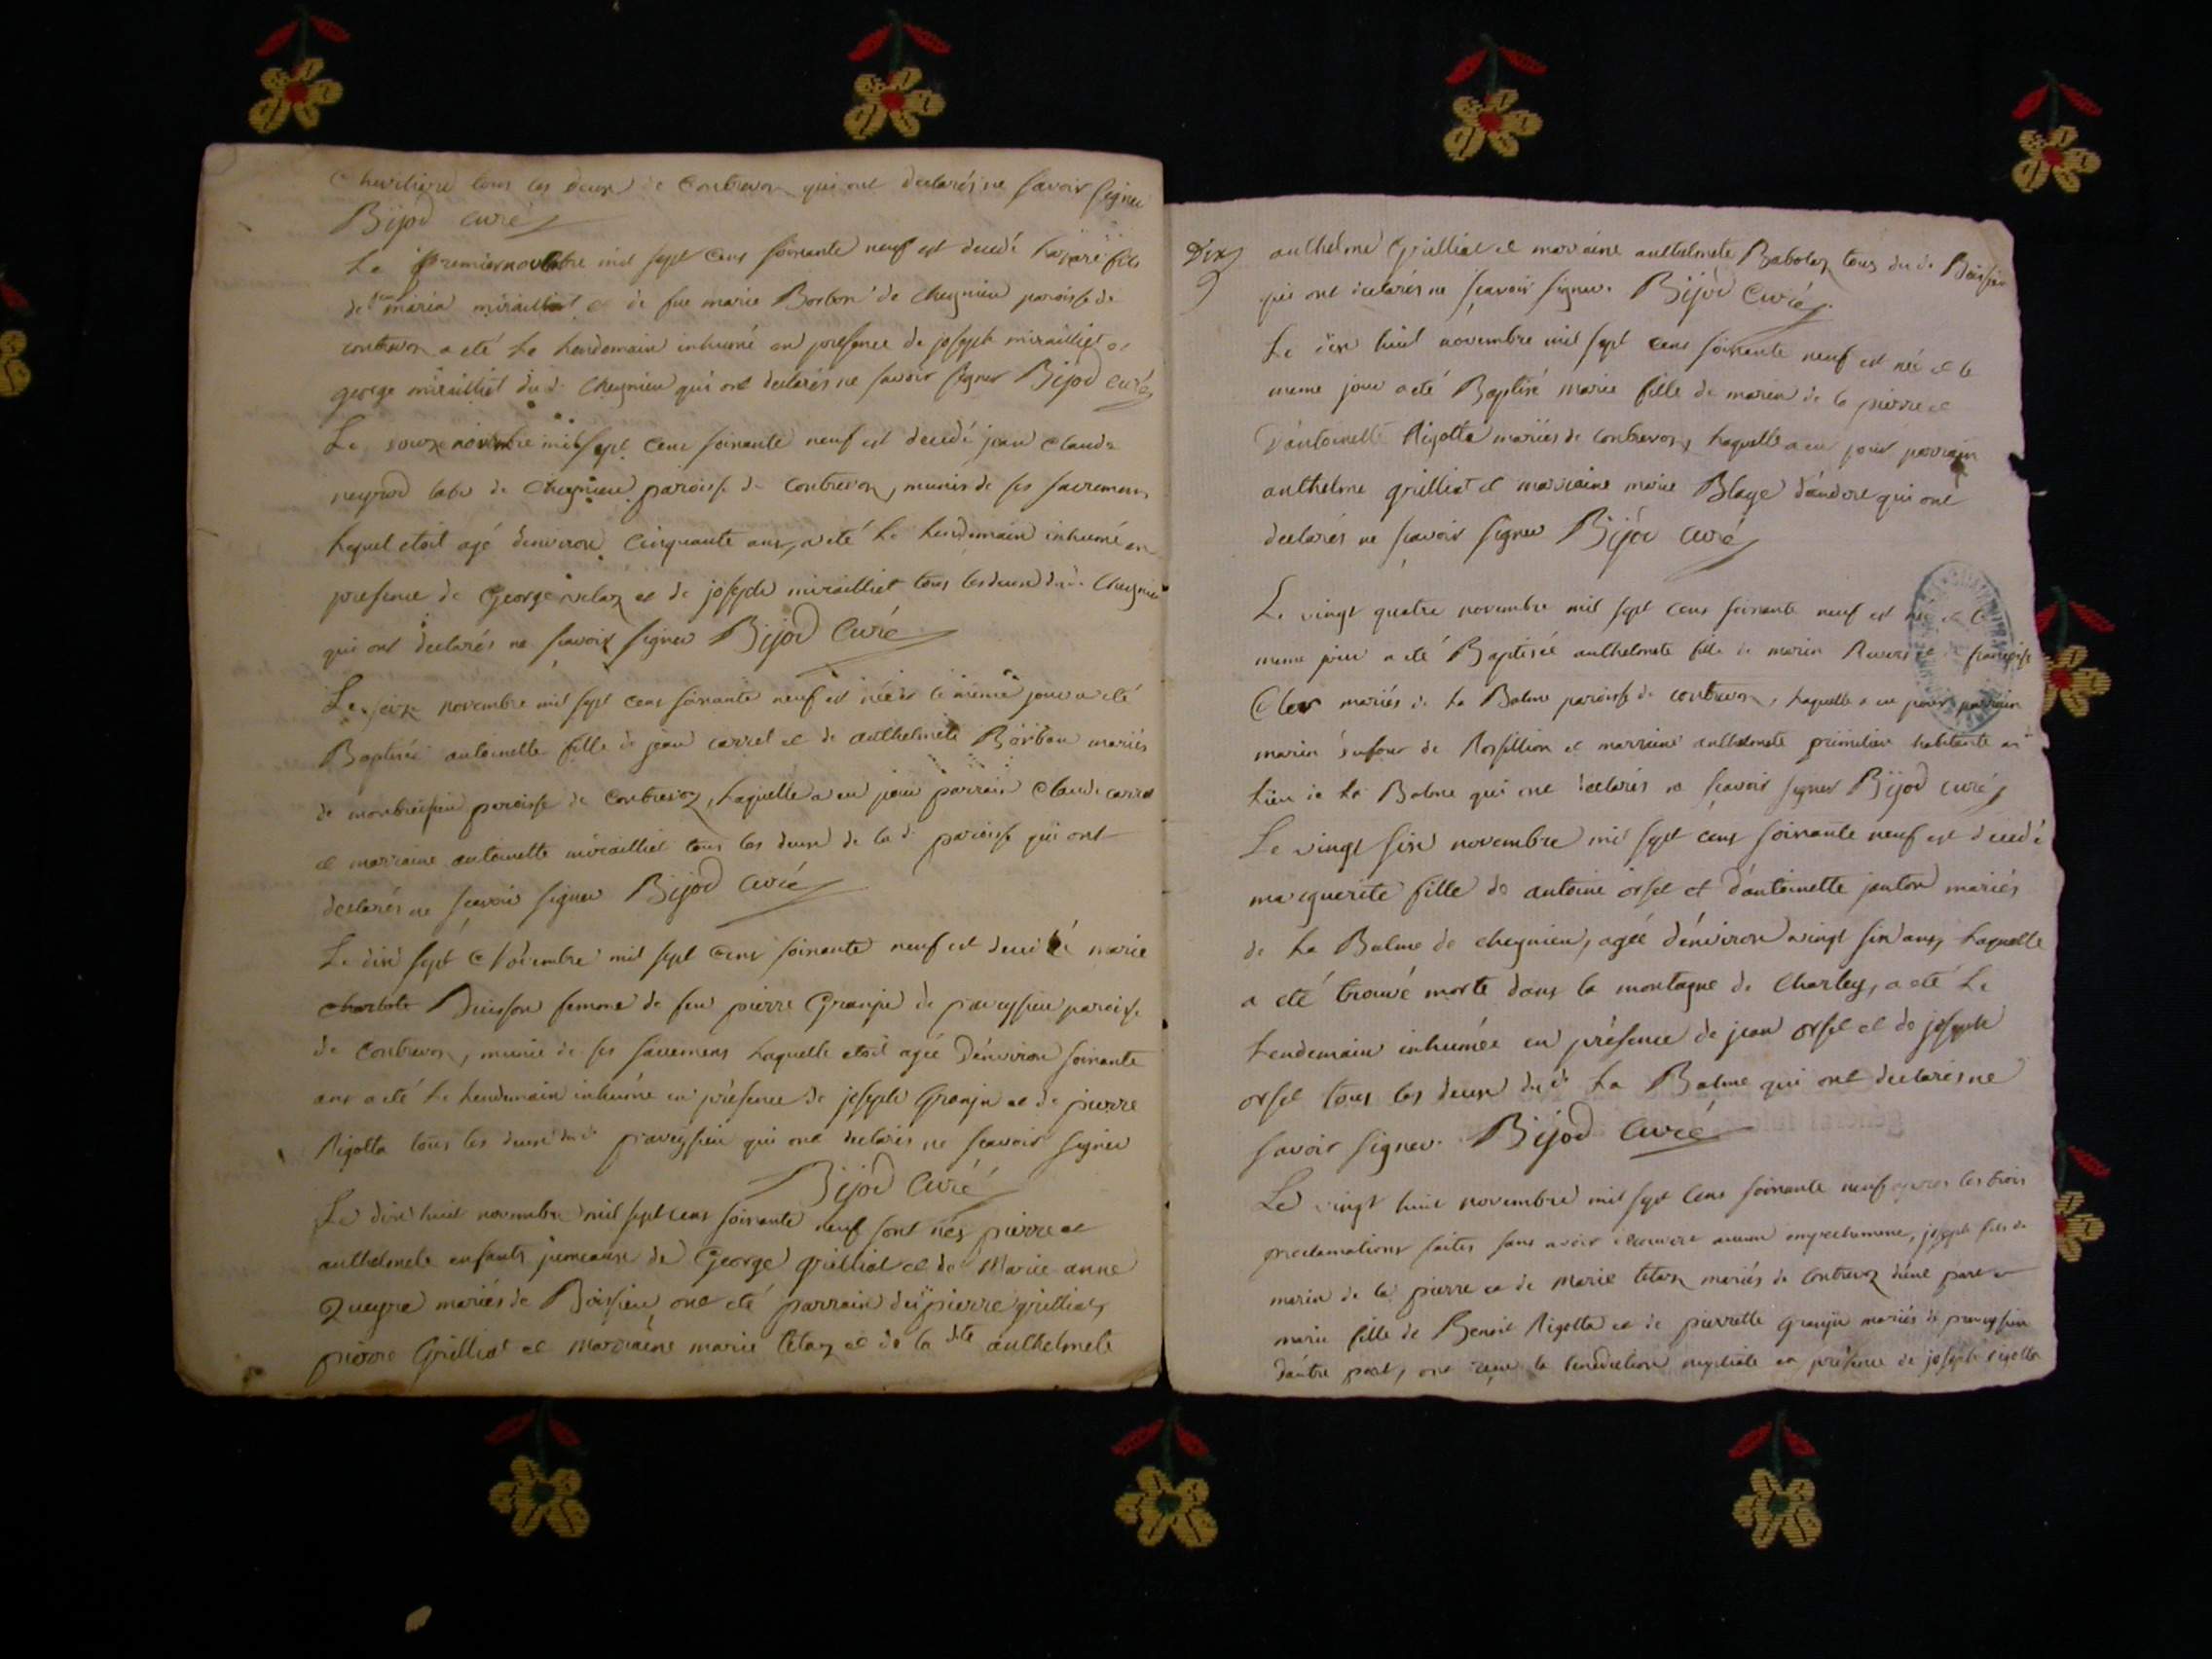 tous les deux de Contrevoz qui ont declarés ne savoir signer
Bijod curé
Le premier novembre mil sept cens soixante neuf est decedé fils
de maria miralliet et de feue marie Borbon de Cheygnieu paroisse de
contrevoz a eté le lendemain inhumé en presence de joseph miralliet et
george miralliet du d. Cheygnieu qui ont declarés ne savoir signer Bijod curé
Le novembre mil sept cens soixante neuf est decedé jean claude
neyrod labr de Cheygnieu paroisse de Contrevoz, munis de ses sacremens
lequel etoit agé d'environ cinquante ans, a eté le lendemain inhumé en
presence de George velaz et de joseph miralliet tous les deux du d. Cheygnieu
qui ont declarés ne sçavoir signer Bijod Curé
Le seize novembre mil sept cens soixante neuf est née et le même jour a eté
Baptisée antoinette fille de jean carrel et de anthelmete Borbon mariés
de montbreisieu paroisse de Contrevoz, laquelle a eu pour parrain Claude carrel
et marraine antoinette miralliet tous les deux de la d. paroisse qui ont
declarés ne sçavoir signer Bijod Curé
Le dix sept Novembre mil sept cens soixante neuf est decedé marie
Buisson femme de feu pierre Granjie de preveysieu paroisse
de Contrevoz, munie de ses sacremens laquelle etoit agée d'environ soixante
ans a eté le lendemain inhumée en présence de joseph Granjie et de pierre
Rigotta tous les deux du d. preveysieu qui ont declarés ne sçavoir signer
Bijod Curé
Le dix huit novembre mil sept cens soixante neuf sont nés pierre et
anthelmete enfants jumeaux de George Grilliat et de Marie anne
Queyre mariés de Boissieu ont eté parrain du d. pierre grilliat,
pierre Grilliat et marraine marie tetaz et de la dte anthelmete
Dix
anthelme Grilliat et marraine anthelmete Babolaz tous du d. Boissieu
qui ont declarés ne sçavoir signer. Bijod Curé
Le dix huit novembre mil sept cens soixante neuf est née et le
meme jour a eté Baptisé marie fille de marin de la pierre et
d'antoinette Rigotta mariés de Contrevoz, laquelle a eu pour parrain
anthelme grilliat et marraine marie Blaye d'andert qui ont
declarés ne sçavoir signer Bijod curé
Le vingt quatre novembre mil sept cens soixante neuf est née et le
meme jour a eté Baptisée anthelmete fille de marin et de françoise
Cler mariés de la Balme paroisse de contrevoz, laquelle a eu pour parrain
marin dufour de Rossillion et marraine anthelmete habitante au
lieu de la Balme qui ont declarés ne sçavoir signer Bijod curé
Le vingt six novembre mil sept cens soixante neuf est decedé
marguerite fille de antoine orsel et d'antoinette janton mariés
de la Balme de cheygnieu, agée d'environ vingt six ans, laquelle
a eté trouvé morte dans la montagne de Charley, a eté le
lendemain inhumée en présence de jean orsel et de joseph
orsel tous les deux du d. la Balme qui ont declarés ne
savoir signer. Bijod Curé
Le vingt huit novembre mil sept cens soixante neuf apres les trois
proclamations faites sans avoir decouvert aucun empechement, joseph fils de
marin de la pierre et de Marie tetaz mariés de Contrevoz d'une part et
marie fille de Benoit Rigotta et de pierrette Granjie mariés de preveysieu
d'autre part, ont reçu la benediction nuptiale en présence de joseph rigotta